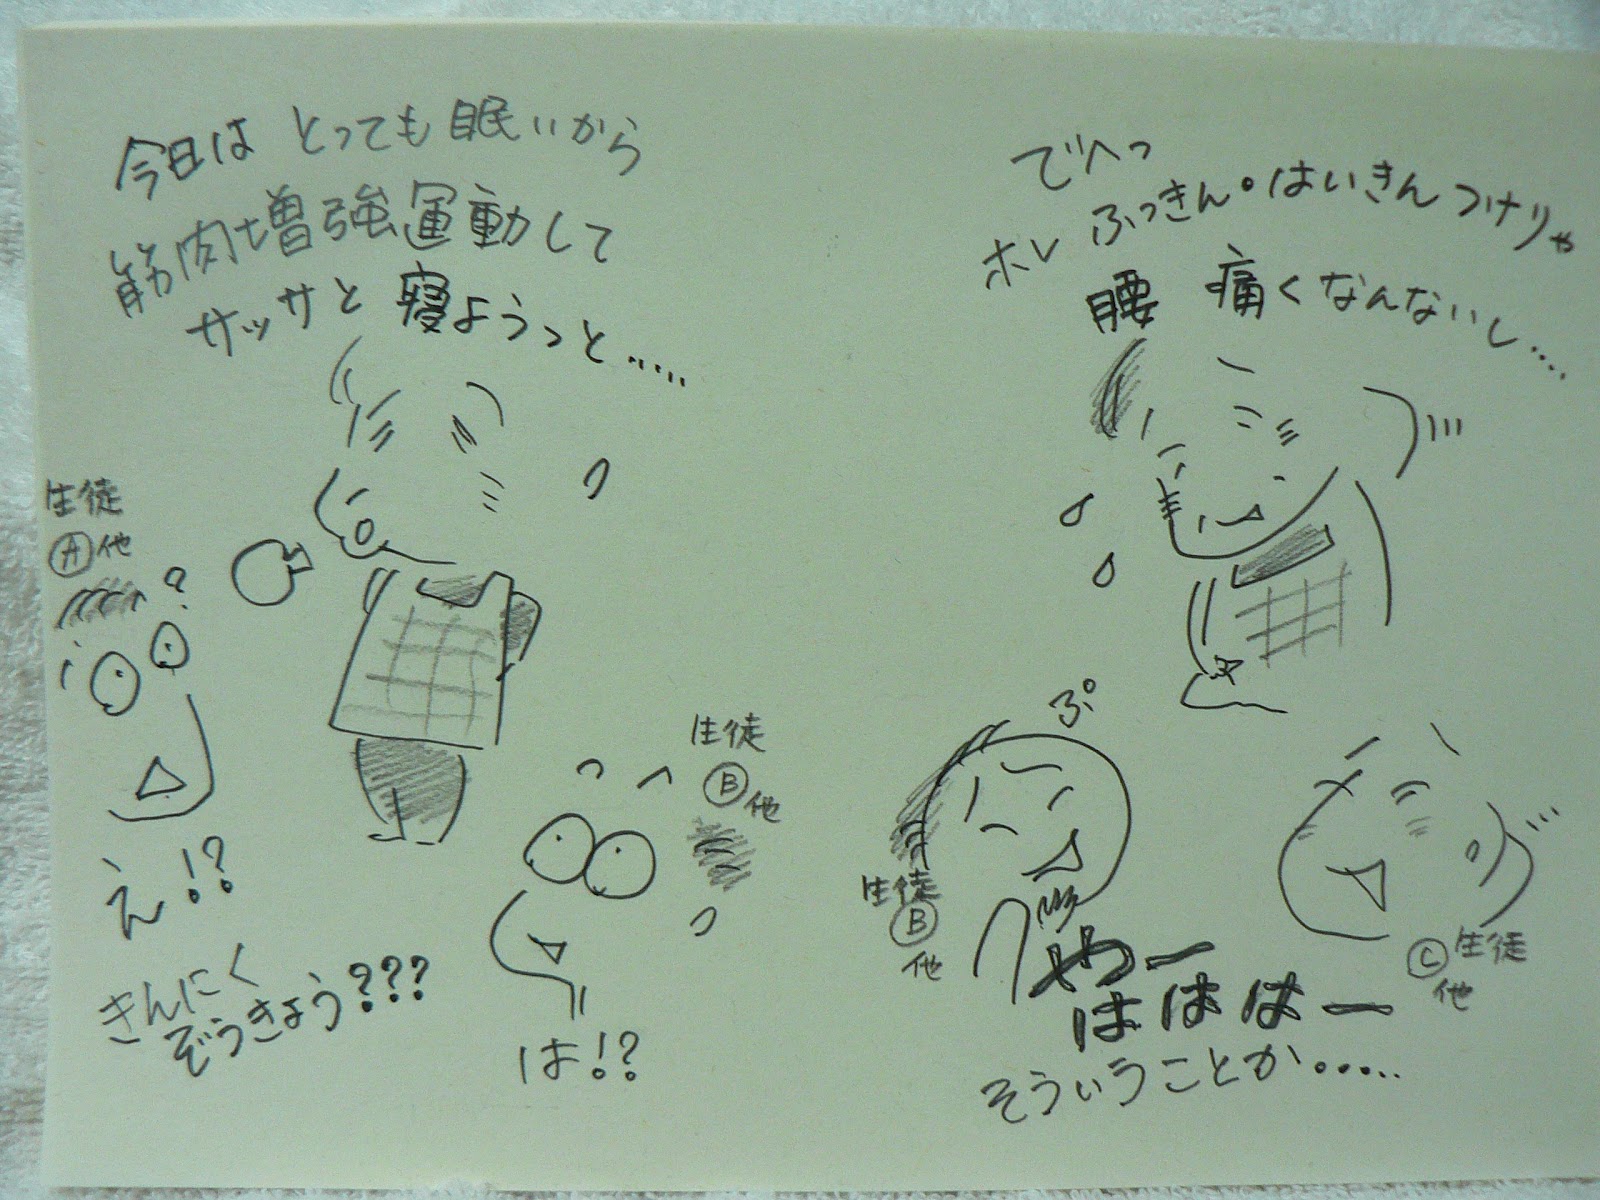 今日は とっても眠いから
筋肉増強運動して
サッサと寝ようっと.....
生徒
Ⓐ他
?
え!?
きんにく
ぞうきょう???
生徒
Ⓑ他
は!?
でへっ
ホレ ふっきん・はいきんつけりゃ
腰 痛くなんないし....
ぷ
生徒
Ⓑ
他
やー
はははー
そういうことか.....
Ⓒ生徒
他